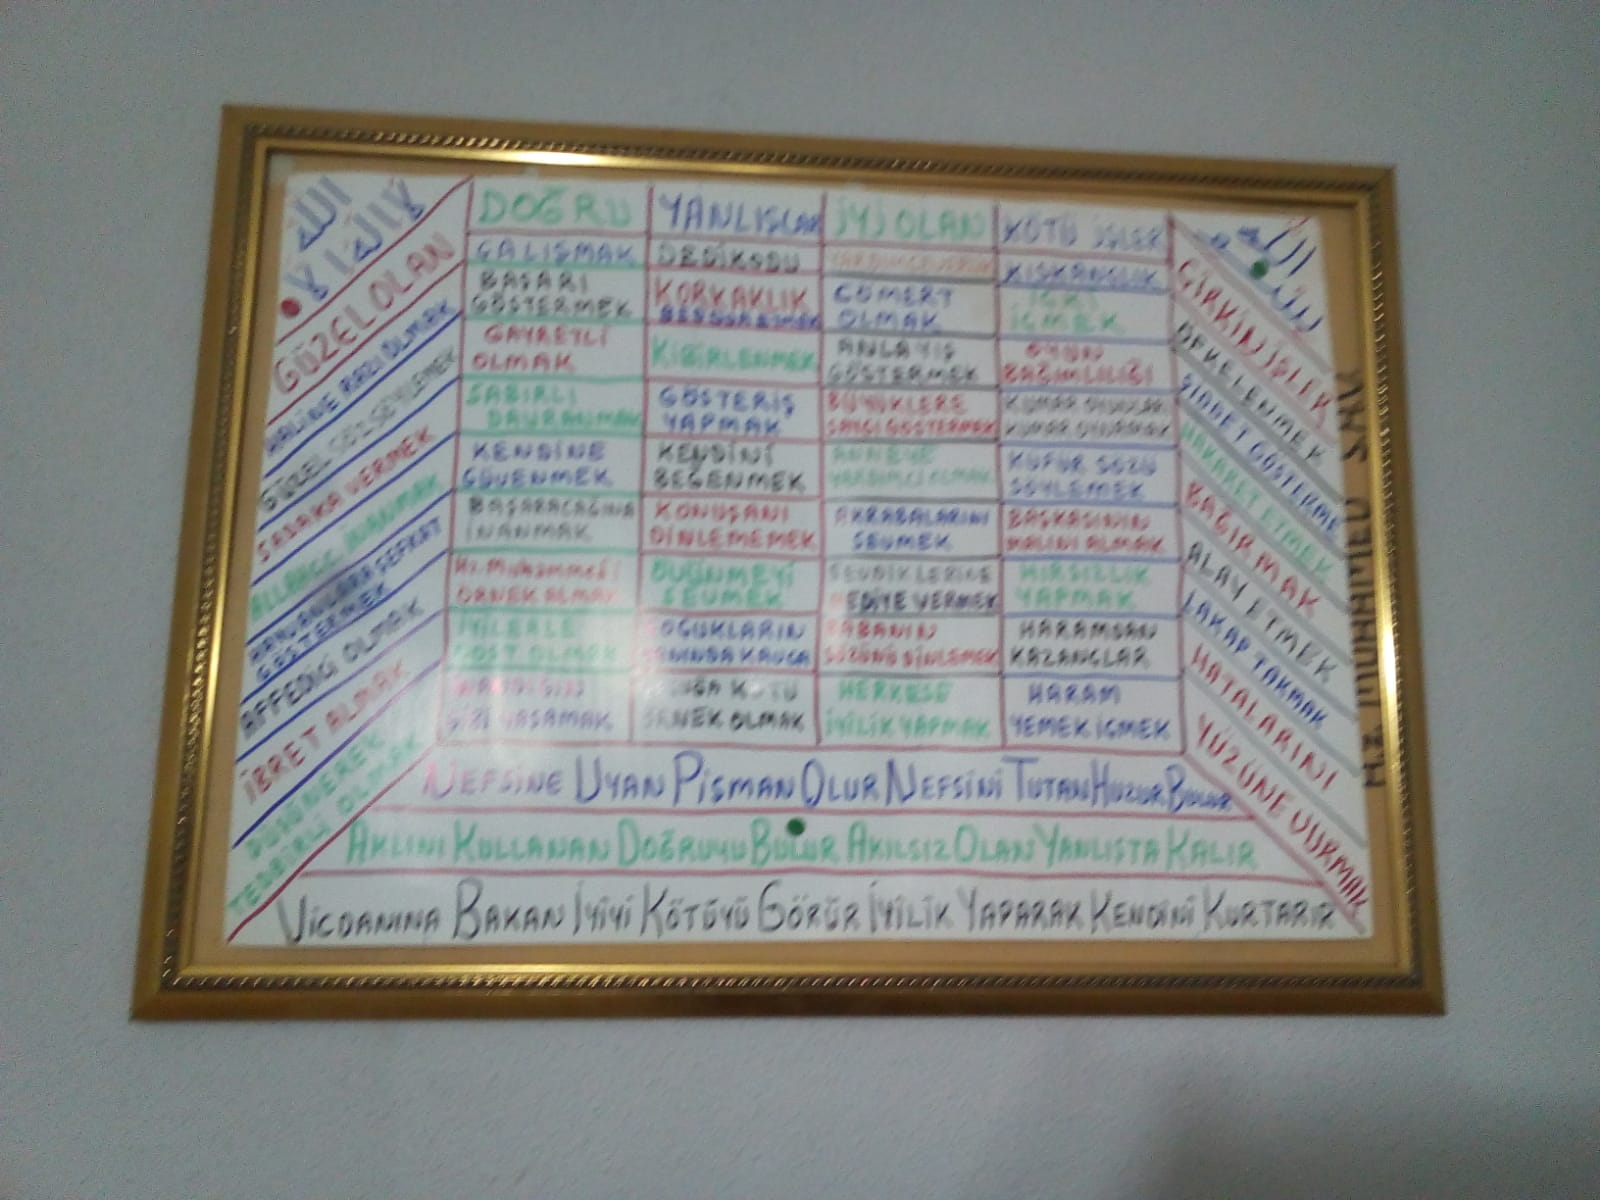 GÜZEL OLAN
HALİNE RAZI OLMAK
GÜZEL SÖZ SÖYLEMEK
SADAKA VERMEK
ALLAHCC. İNANMAK
HAYVANLARA ŞEFKAT
GÖSTERMEK
AFFEDİCİ OLMAK
İBRET ALMAK
DÜŞÜNEREK
TEDBİRLİ OLMAK
DOĞRU
ÇALIŞMAK
BAŞARI
GÖSTERMEK
GAYRETLİ
OLMAK
SABIRLI
DAVRANMAK
KENDİNE
GÜVENMEK
BAŞARACAĞINA
İNANMAK
Hz. Muhammedi
ÖRNEK ALMAK
İYİLERLE
DOST OLMAK
GİBİ YAŞAMAK
YANLIŞLAR
DEDİKODU
KORKAKLIK
KİBİRLENMEK
GÖSTERİŞ
YAPMAK
KENDİNİ
BEĞENMEK
KONUŞANI
DİNLEMEMEK
SEVMEK
ÇOCUKLARIN
YANINDA KAVGA
KÖTÜ
ÖRNEK OLMAK
İYİ OLAN
YARDIMSEVERLİK
CÖMERT
OLMAK
ANLAYIŞ
GÖSTERMEK
BÜYÜKLERE
SAYGI GÖSTERMEK
ANNEYE
YARDIMCI OLMAK
AKRABALARINI
SEVMEK
SEVDİKLERİNE
HEDİYE VERMEK
BABANIN
SÖZÜNÜ DİNLEMEK
HERKESE
İYİLİK YAPMAK
KÖTÜ İŞLER
KISKANÇLIK
İÇKİ
İÇMEK
OYUN
BAĞIMLILIĞI
KUMAR
KUMAR OYNAMAK
KÜFÜR SÖZÜ
SÖYLEMEK
BAŞKASININ
MALINI ALMAK
HIRSIZLIK
YAPMAK
HARAMDAN
KAZANÇLAR
HARAM
YEMEK İÇMEK
ÇİRKİN İŞLER
ÖFKELENMEK
ŞİDDET GÖSTERME
HAKARET ETMEK
BAĞIRMAK
ALAY ETMEK
LAKAP TAKMAK
HATALARINI
YÜZÜNE VURMAK
Hz. MUHAMMED SAV
NEFSİNE UYAN PİŞMAN OLUR NEFSİNİ TUTAN HUZUR BULUR
AKLINI KULLANAN DOĞRUYU BULUR AKILSIZ OLAN YANLIŞTA KALIR
VİCDANINA BAKAN İYİYİ KÖTÜYÜ GÖRÜR İYİLİK YAPARAK KENDİNİ KURTARIR